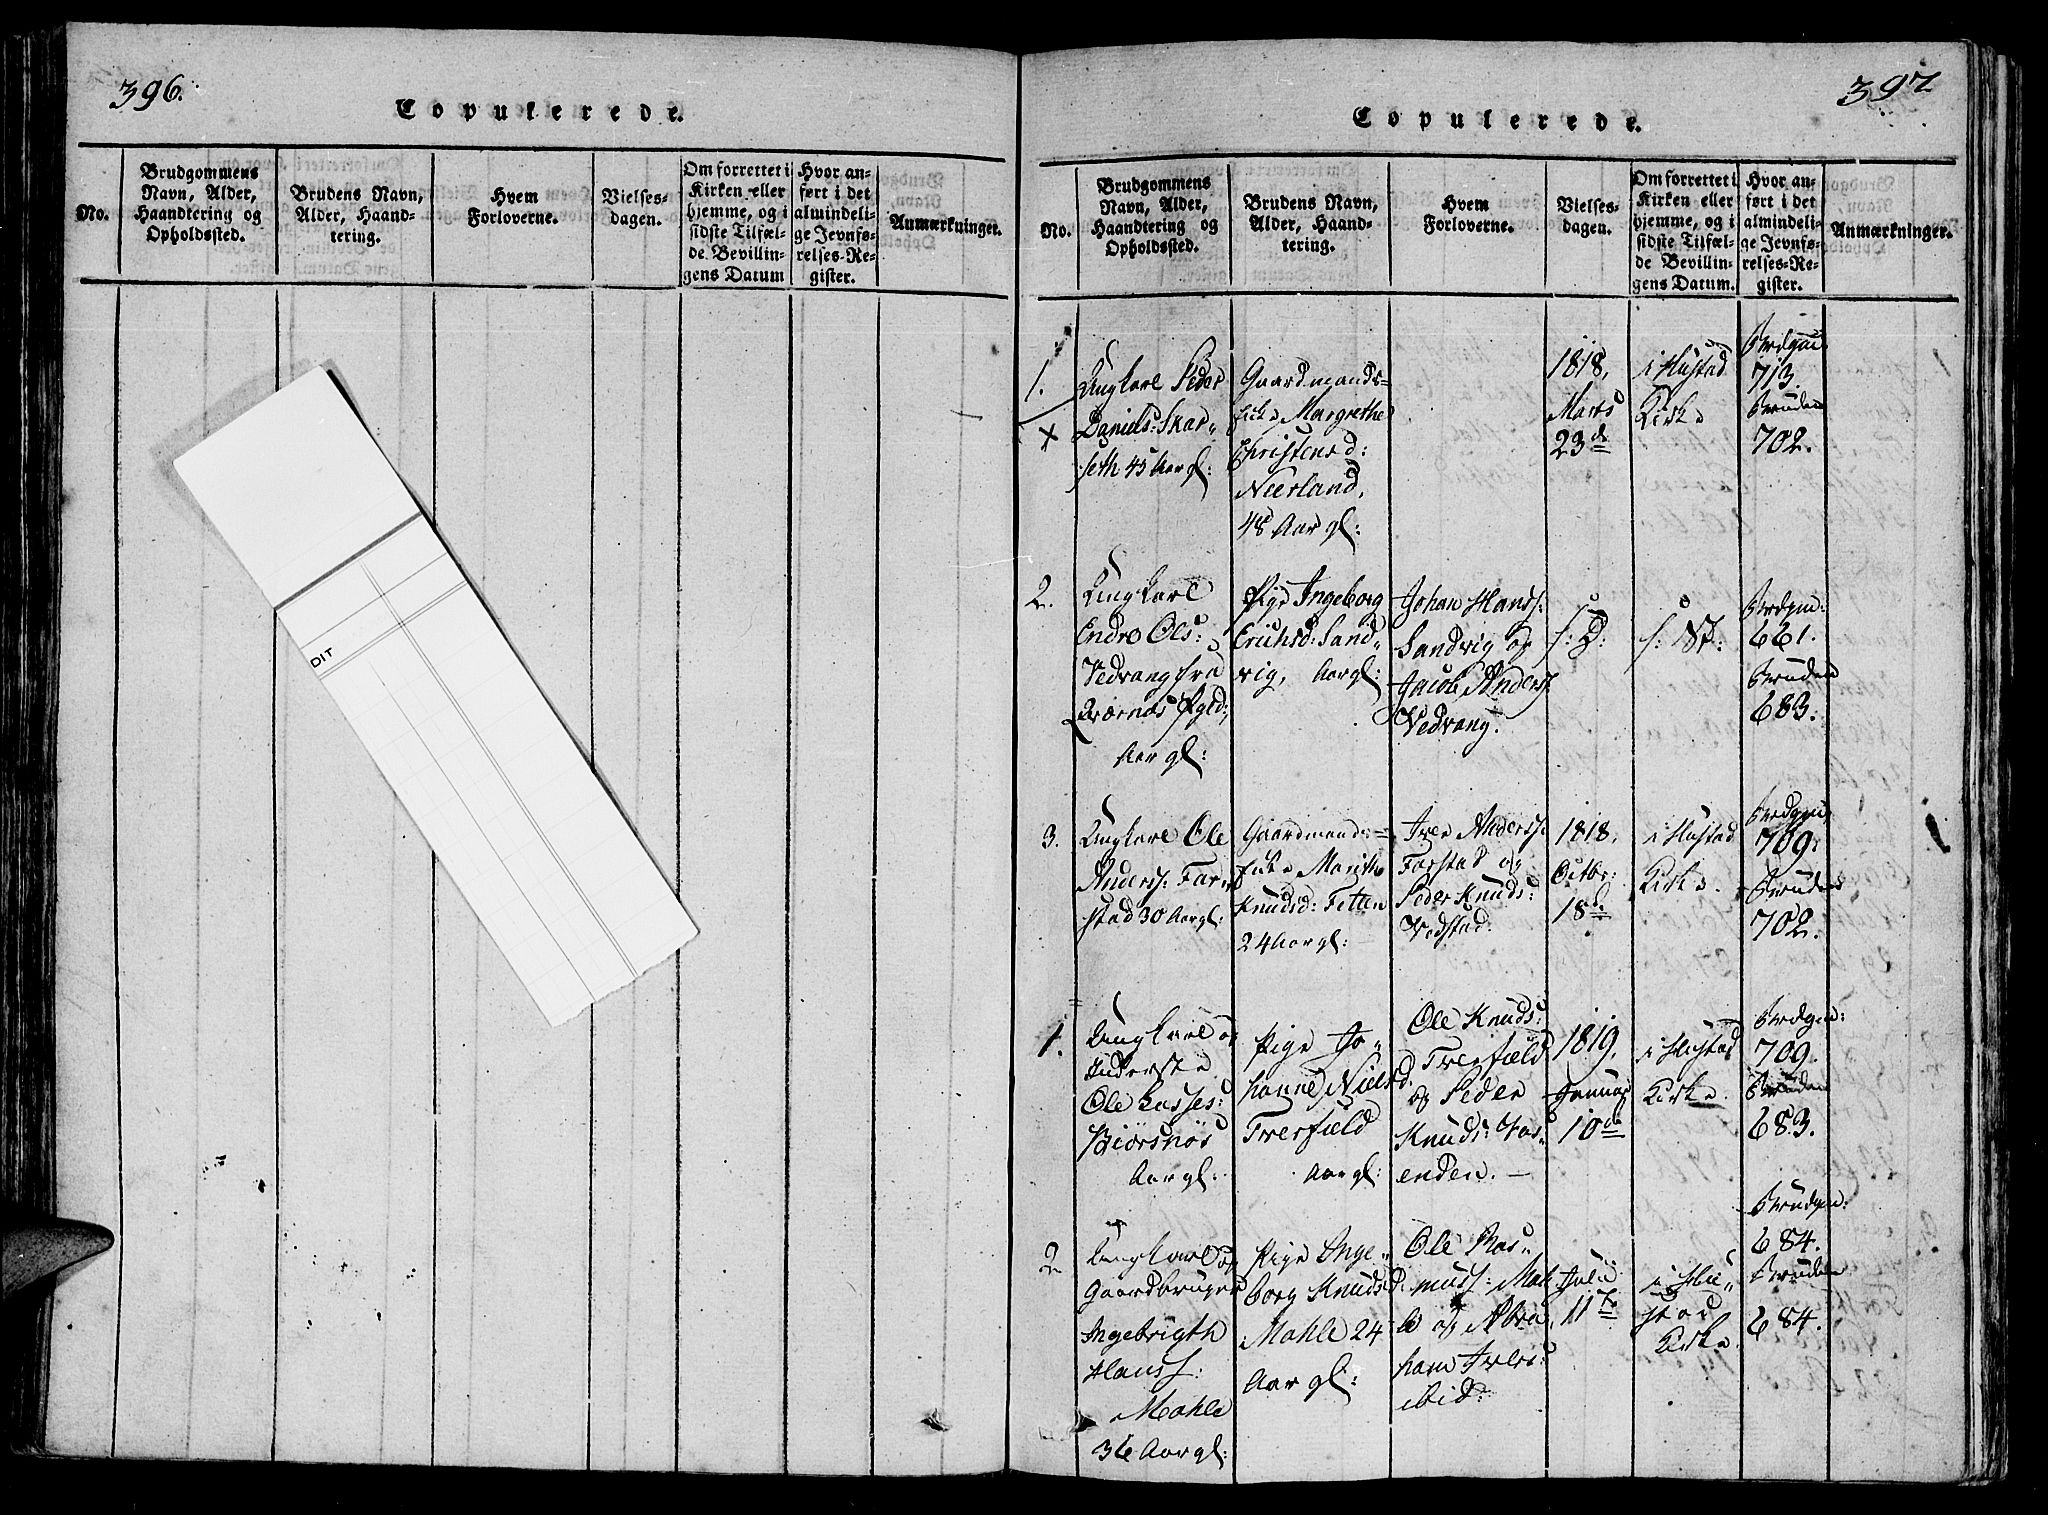 396.
Copulerede.
No.
Brudgommens
Navn, Alder,
Haandtering og
Opholdssted.
Brudens Navn,
Alder, Haand-
tering.
Hvem
Forloverne.
Vielses-
dagen.
Om forrettet i
Kirken eller
hjemme, og i
sidste Tilfæl-
de Bevillin-
gens Datum
Hvor an-
ført i det
almindeli-
ge Jevnfø-
relses-Re-
gister.
Anmærkninger.
DIT
397
Copulerede.
No.
Brudgommens
Navn, Alder,
Haandtering og
Opholdssted.
Brudens Navn,
Alder, Haand-
tering.
Hvem
Forloverne.
Vielses-
dagen.
Om forrettet i
Kirken eller
hjemme, og i
sidste Tilfæl-
de Bevillin-
gens Datum.
Hvor an-
ført i det
almindeli-
ge Jevnfø-
relses-Re-
gister.
Anmærkninger.
1.
Ungkarl Peder
Daniels: Skar-
seth 45 Aar gl:
Gaardmands-
Enke Margrethe
Christensd:
Neerland,
48 Aar gl:
1818,
Marts
23de
i Hustad
Kirke
713.
Bruden
702.
2.
Ungkarl
Endre Ols:
Vedvang fra
Aar gl:
Pige Ingeborg
Erichsd: Sand-
vig, Aar gl:
Johan Hanss:
Sandvig og
Jacob Anderss:
Vedvang.
s: D:
s: St:
Brdgm:
661.
Bruden
683.
3.
Ungkarl Ole
Anderss: Far-
stad 30 Aar gl:
Gaardmands-
Enke Marithe
Knudsd: Fetten
24 Aar gl:
Iver Anderss:
Farstad og
Peder Knuds:
Vedstad:
1818.
Octbr:
18de
i Hustad
Kirke.
709.
Bruden
702.
1.
Ungkarl og
Inderste
Ole Lasses:
Biørsnøs
Aar gl:
Pige Jo-
hanne Nielsd.
Tverfield
Aar gl:
Ole Knuds:
Tverfield
og Peder
Knuds:
enden.
1819.
Januar
10de
i Hustad
Kirke.
Brdgm:
709.
Bruden
683.
2
Ungkarl og
Gaardbruger
Ingebrigth
Hanss:
Mahle
36 Aar gl:
Pige Inge-
borg Knudsd:
Mahle 24
Aar gl:
Ole Ras-
muss: Mah-
le og Abra-
ham Ivers:
ibid:
Julii
11te
i Hu-
stad
Kirke.
Brudgm:
684.
Bruden
684.